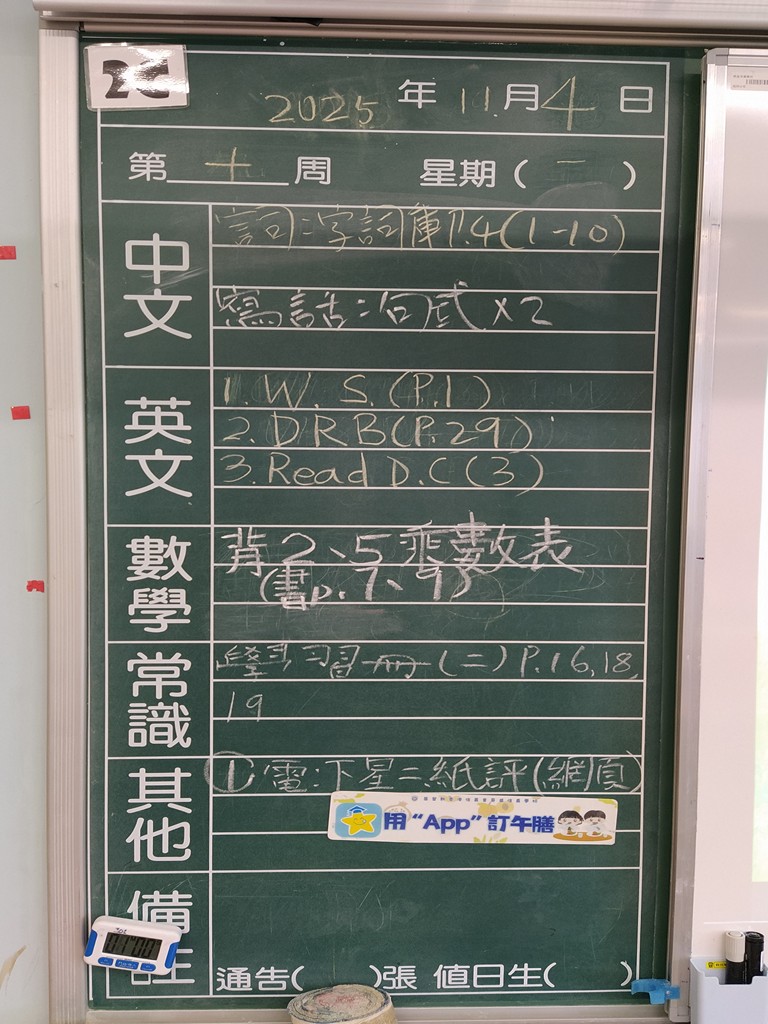 2C
2025 年 11 月 4 日
第 十 周 星期 ( 二 )
中文
詞:字詞庫P.4(1-10)
寫話:句式x2
英文
1. W. S. (P.1)
2. DRB(P.29)
3. Read D.C(3)
數學
背2、5乘數表
(書p.7、9)
常識
學習冊(二)P.16,18,
19
其他
① 電:下星二紙評(網頁)
用“App”訂午膳
備註
通告( )張 值日生( )